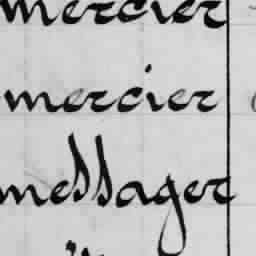 mercier
mercier
messager
"